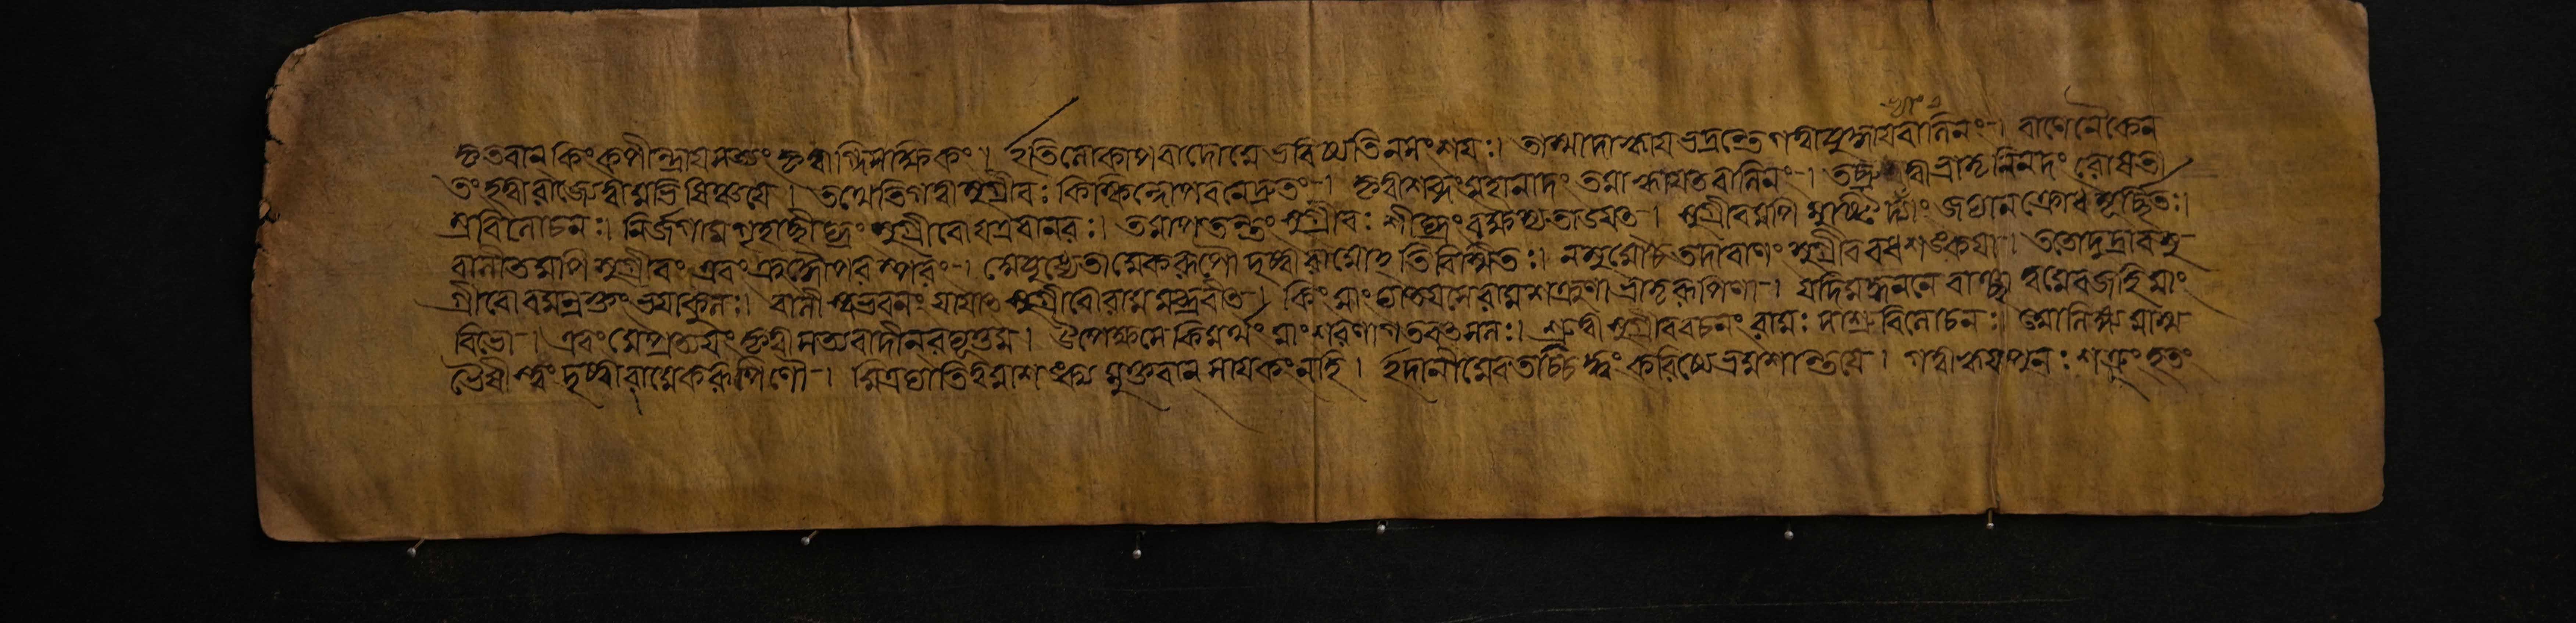 কৃতবান্ কিং কপীন্দ্রায় সখ্যং কৃত্বাগ্নিসাক্ষিকং । ইতি লোকাপবাদো মে ভবিষ্যতি ন সংশয়ঃ । তস্মাদাহ্বয় ভদ্রন্তে গত্বা যুদ্ধায় বালিনং । বাণেনৈকেন
তং হত্বা রাজ্যে ত্বামভিষিঞ্চয়ে । তথেতি গত্বা সুগ্রীবঃ কিষ্কিন্ধোপবনে দ্রুতং । কৃত্বা শব্দং মহানাদং তমাহ্বায়ত বালিনং । তচ্ছ্রুত্বা ভ্রাতৃনিনদং রোষতা
ম্রবিলোচনঃ । নির্জগাম গৃহাচ্ছীঘ্রং সুগ্রীবো যত্র বানরঃ । তমাপতন্তং সুগ্রীবঃ শীঘ্রং বক্ষস্যতাডয়ৎ । সুগ্রীবমপি মুষ্টিভ্যাং জঘান ক্রোধমূর্চ্ছিতঃ ।
বালী তমপি সুগ্রীবং এবং ক্রুদ্ধৌ পরস্পরং । মেযুধ্যেতামেকরূপৌ দৃষ্ট্বা রামোঽতিবিস্মিতঃ । ন মুমোচ তদা বাণং সুগ্রীববধশঙ্কয়া । ততো দুদ্রাব সু
গ্রীবো বমন্রক্তং ভয়াকুলঃ । বালী স্বভবনং যাযাৎ সুগ্রীবো রামমব্রবীৎ । কিং মাং ঘাতয়সে রাম শত্রুণা ভ্রাতৃরূপিণা । যদি মদ্ধননে বাঞ্ছা ত্বমেব জহি মাং
বিভো । এবং মে প্রত্যয়ং কৃত্বা সত্যবাদীন্ রঘূত্তম । উপেক্ষসে কিমর্থং মাং শরণাগতবৎসলঃ । শ্রুত্বা সুগ্রীববচনং রামঃ সাশ্রুবিলোচনঃ । আলিঙ্গ্য মাস্ম
ভৈষীস্ত্বং দৃষ্ট্বা বামেকরূপিণৌ । মিত্রঘাতিত্বমাশঙ্ক্য মুক্তবান্ সায়কং নহি । ইদানীমেব তচ্চিহ্নং করিষ্যে ভ্রমশান্তয়ে । গত্বাহ্বয় পুনঃ শত্রুং হতং